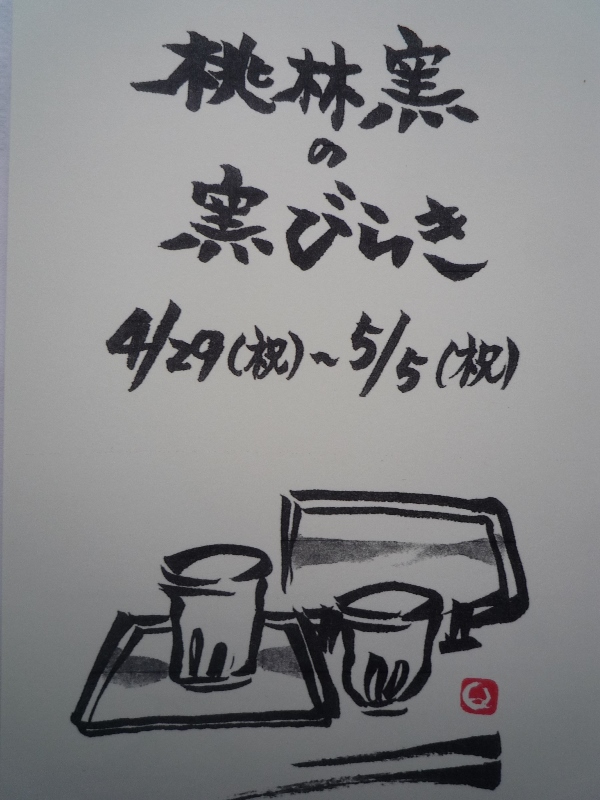 桃林窯
の
窯びらき
4/29(祝)~5/5(祝)